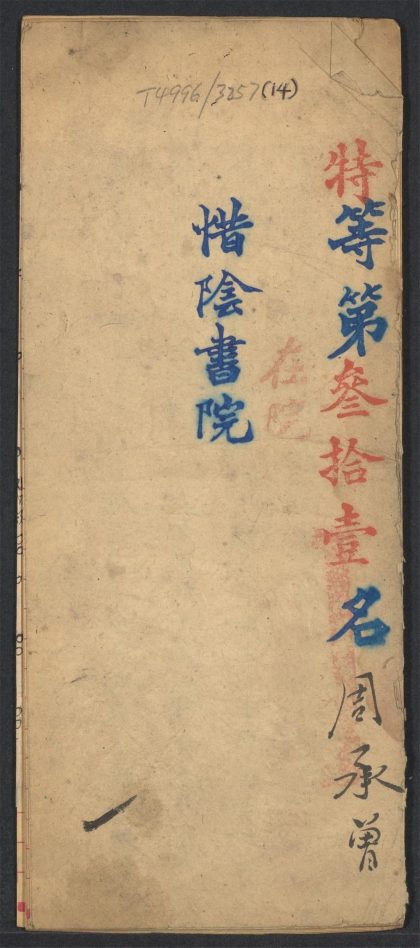 T4996/3257(14)
特等第叁拾壹名周承曾
在院
惜陰書院